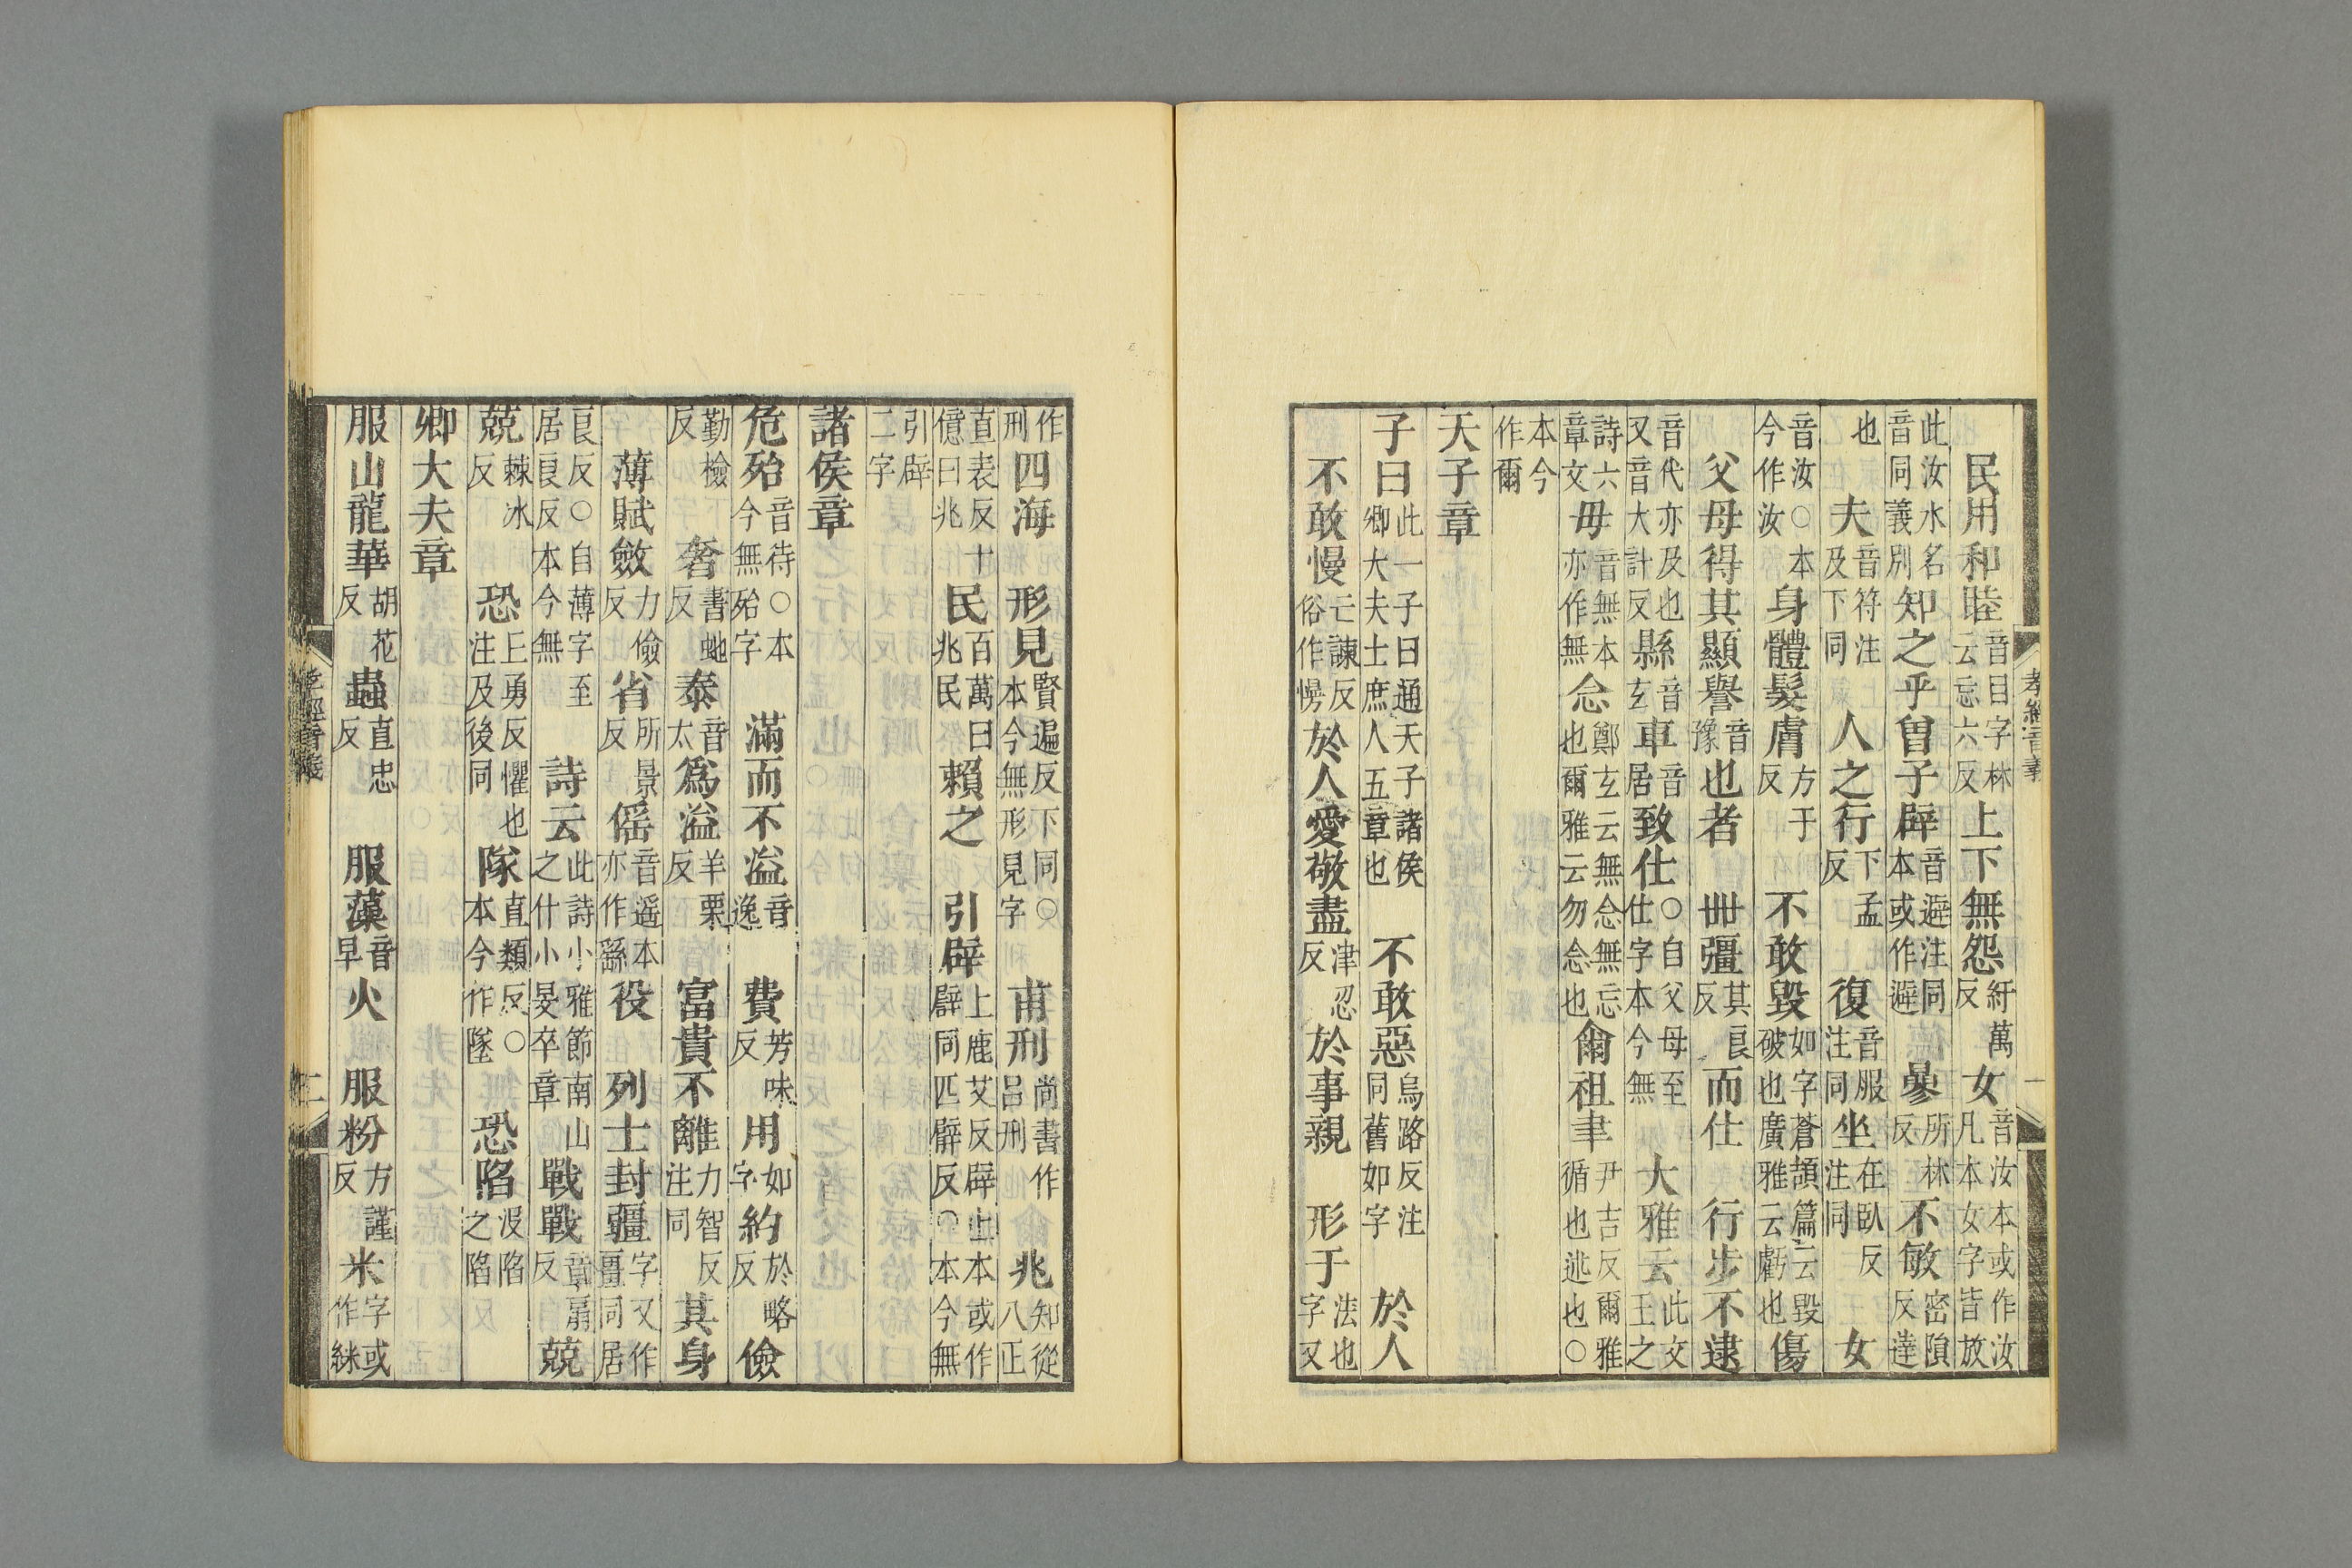 民用和睦音目字林云忘六反上下無怨紆萬反女音汝本或作汝凡本女字皆放
此汝水名音同義別知之乎曾子辟音避注同本或作避參所林反不敏密隕反達
也夫音符注及下同人之行下孟反復音服注同坐在臥反注同女
音汝○本今作汝身體髮膚方于反不敢毀如字蒼頡篇云毀破也廣雅云虧也傷
父母得其顯譽音豫也者丗彊其良反而仕行步不逮
音代亦及也又音大計反縣音玄車音居致仕○自父母至仕字本今無大雅云此文王之
詩六章文毋音無本亦作無念鄭玄云無念無忘也爾雅云勿念也爾祖聿尹吉反爾雅循也述也○
本今作爾
天子章
子曰此一子曰通天子諸侯卿大夫士庶人五章也不敢惡烏路反注同舊如字於人
不敢慢亡諫反俗作慢於人愛敬盡津忍反於事親形于法也字又
孝經音義
一
作刑四海形見賢遍反下同○本今無形見字甫刑尚書作呂刑兆知從八正
直表反十億曰兆民百萬曰兆民賴之引辟上鹿艾反辟上本或作辟同匹臂反○本今無
引辟二字
諸侯章
危殆音待○本今無殆字滿而不溢音逸費芳味反用如字約於略反儉
勤檢反奢書虵反泰音太為溢羊栗反富貴不離力智反注同其身
薄賦斂力儉反省所景反傜音遥本亦作繇役列士封疆字又作畺同居
良反○自薄字至居良反本今無詩云此詩小雅節南山之什小旻卒章戰戰章扇反兢
棘冰反恐上勇反懼也注及後同隊直類反○本今作墜恐陷沒陷之陷
卿大夫章
服山龍華胡花反蟲直忠反服藻音早火服粉方謹反米字或作䋛
孝經音義
二